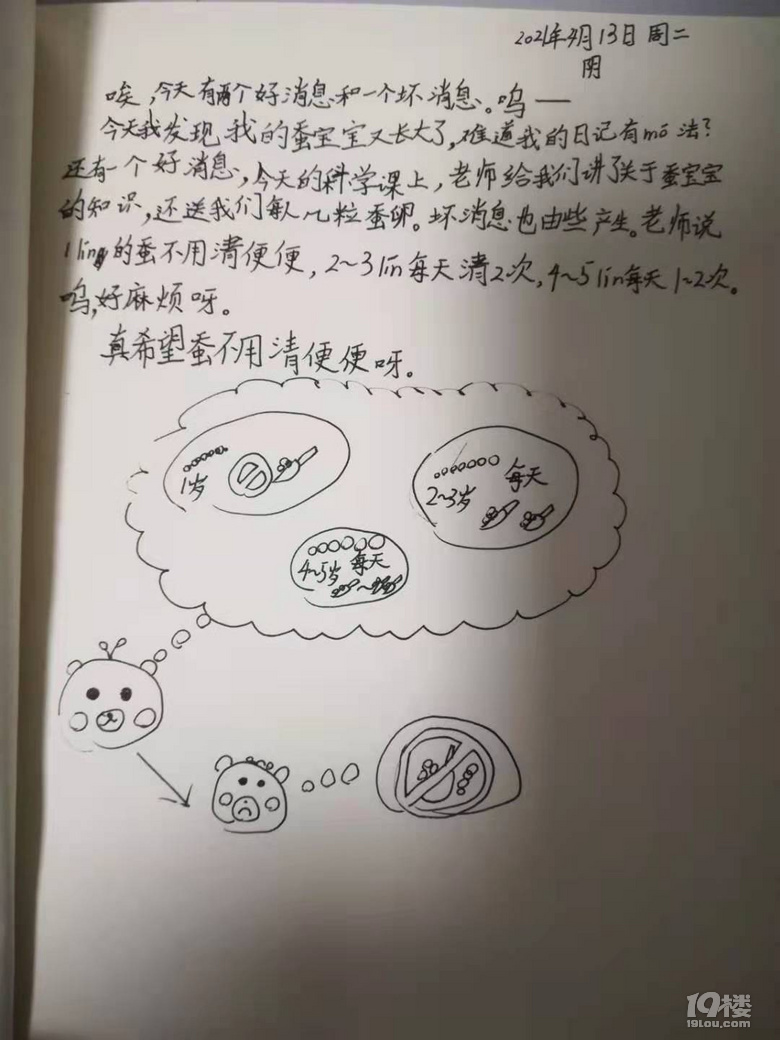 2021年4月13日 周二
阴
唉,今天有两个好消息和一个坏消息。呜——
今天我发现,我的蚕宝宝又长大了,难道我的日记有mō法?
还有一个好消息,今天的科学课上,老师给我们讲了关于蚕宝宝
的知识,还送我们每人几粒蚕卵。坏消息也由些产生。老师说
1 ling的蚕不用清便便,2~3lin每天清2次,4~5lin每天1~2次。
呜,好麻烦呀。
真希望蚕不用清便便呀。
1岁
2~3岁 每天
4~5岁 每天
19楼
19lou.com